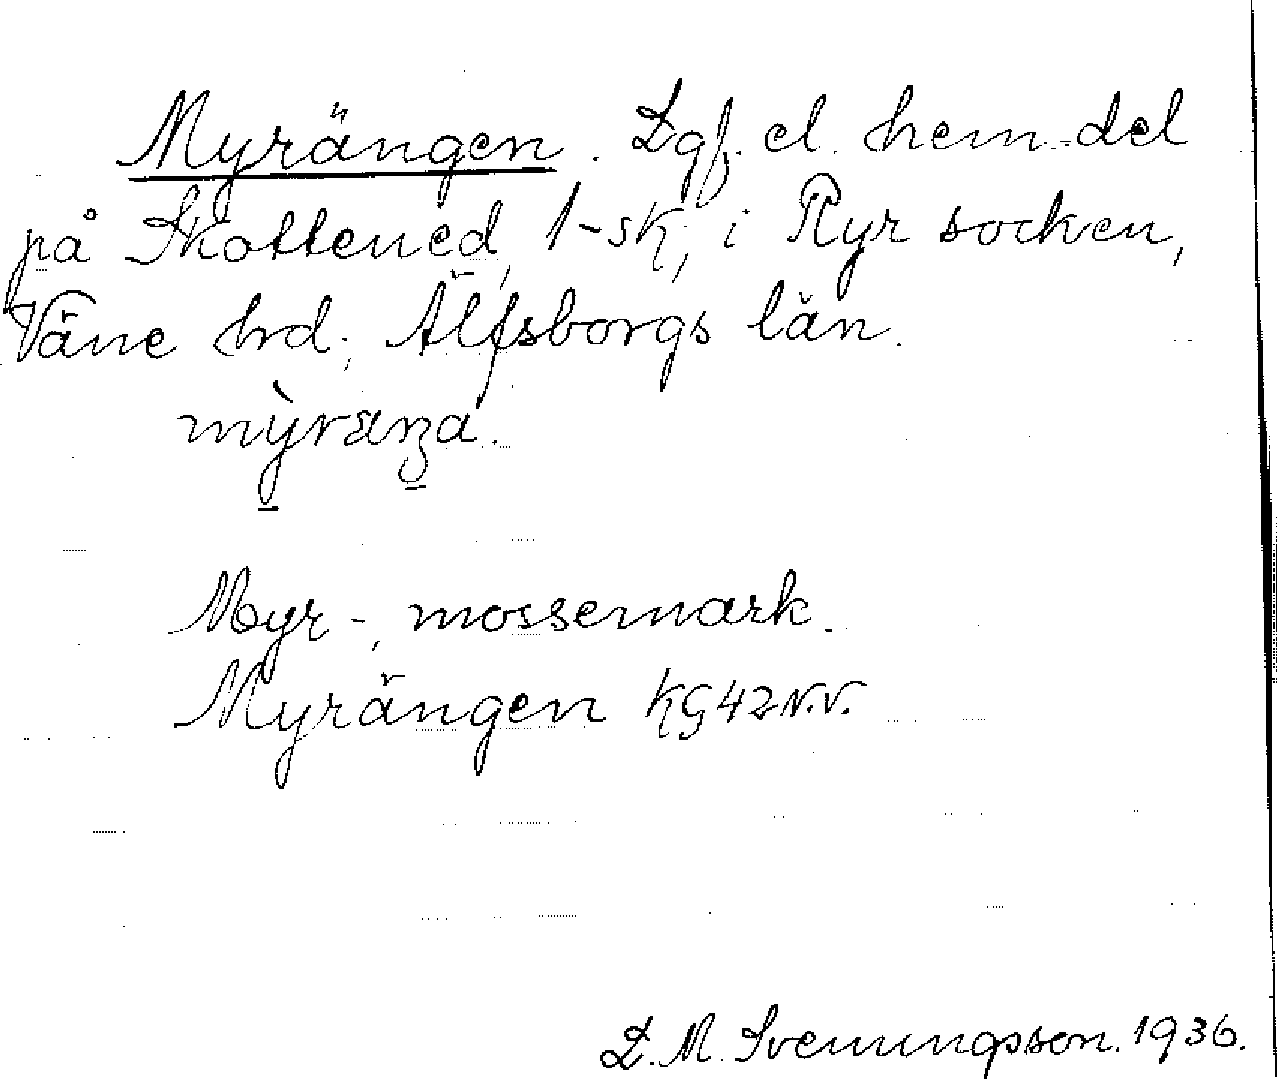 Myrängen. Lgf. el. hem.del
på Skottened, 1-sk, i Ryr socken,
Väne hrd., Älfsborgs län.
Myr-, mossemark.
Myrängen KG42N.V.
L. M. Svenungsson. 1936.